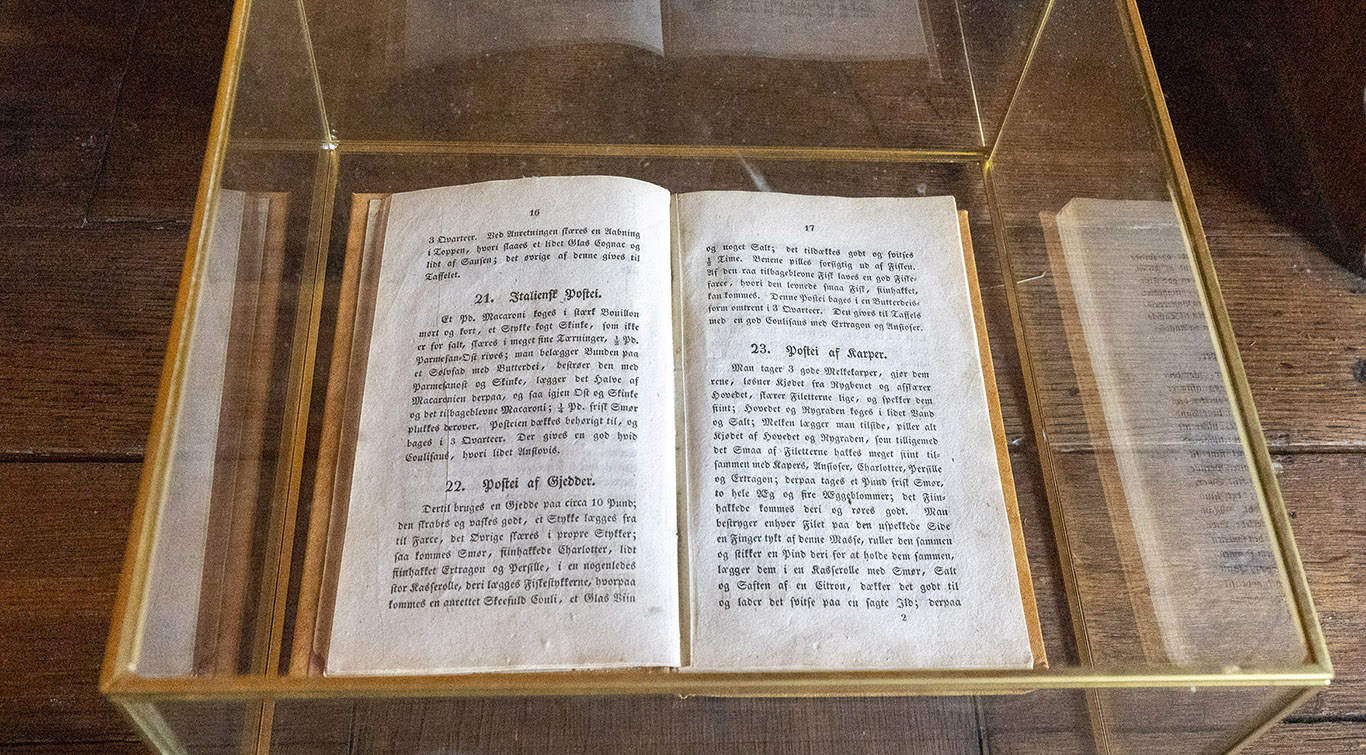 16
3 Qvarteer. Ved Anretningen skæres en Aabning
i Toppen, hvori slaaes et lidet Glas Cognac og
lidt af Sausen; det øvrige af denne gives til
Taffelet.
21. Italiensk Postei.
Et Pd. Macaroni koges i stærk Bouillon
mørt og kort, et Stykke kogt Skinke, som ikke
er for salt, skæres i meget fine Tærninger, ½ Pd.
Parmesan-Ost rives; man belægger Bunden paa
et Sølvfad med Butterdei, bestrøer den med
Parmesanost og Skinke, lægger det Halve af
Macaronien derpaa, og saa igjen Ost og Skinke
og det tilbageblevne Macaroni; ½ Pd. frisk Smør
plukkes derover. Posteien dækkes behørigt til, og
bages i 3 Qvarteer. Der gives en god hvid
Coulisaus, hvori lidet Ansiovis.
22. Postei af Gjedder.
Dertil bruges en Gjedde paa circa 10 Pund;
den skrabes og vaskes godt, et Stykke lægges fra
til Farce, det Øvrige skæres i propre Stykker;
saa kommes Smør, fiinhakkede Charlotter, lidt
fiinhakket Ertragon og Persille, i en nogenledes
stor Kasserolle, deri lægges Fiskestykkerne, hvorpaa
kommes en anrettet Skeefuld Couli, et Glas Viin
17
og noget Salt; det tildækkes godt og svitses
½ Time. Benene pilles forsigtig ud af Fisken.
Af den raa tilbageblevne Fisk laves en god Fiske-
farce, hvori den levnede smaa Fisk, fiinhakket,
kan kommes. Denne Postei bages i en Butterdeis-
form omtrent i 3 Qvarteer. Den gives til Taffels
med en god Coulisaus med Ertragon og Ansioser.
23. Postei af Karper.
Man tager 3 gode Melkekarper, gjør dem
rene, løsner Kjødet fra Rygbenet og afskærer
Hovedet, skærer Filetterne lige, og spekker dem
fiint; Hovedet og Rygraden koges i lidet Vand
og Salt; Melken lægger man tilside, piller alt
Kjødet af Hovedet og Rygraden, som tilligemed
det Smaa af Filetterne hakkes meget fiint til-
sammen med Kapers, Ansioser, Charlotter, Persille
og Ertragon; derpaa tages et Pund frisk Smør,
to hele Æg og fire Æggeblommer; det Fiin-
hakkede kommes deri og røres godt. Man
bestryger enhver Filet paa den uspekkede Side
en Finger tykt af denne Masse, ruller den sammen
og stikker en Pind deri for at holde dem sammen,
lægger dem i en Kasserolle med Smør, Salt
og Saften af en Citron, dækker det godt til
og lader det svitse paa en sagte Ild; derpaa
2